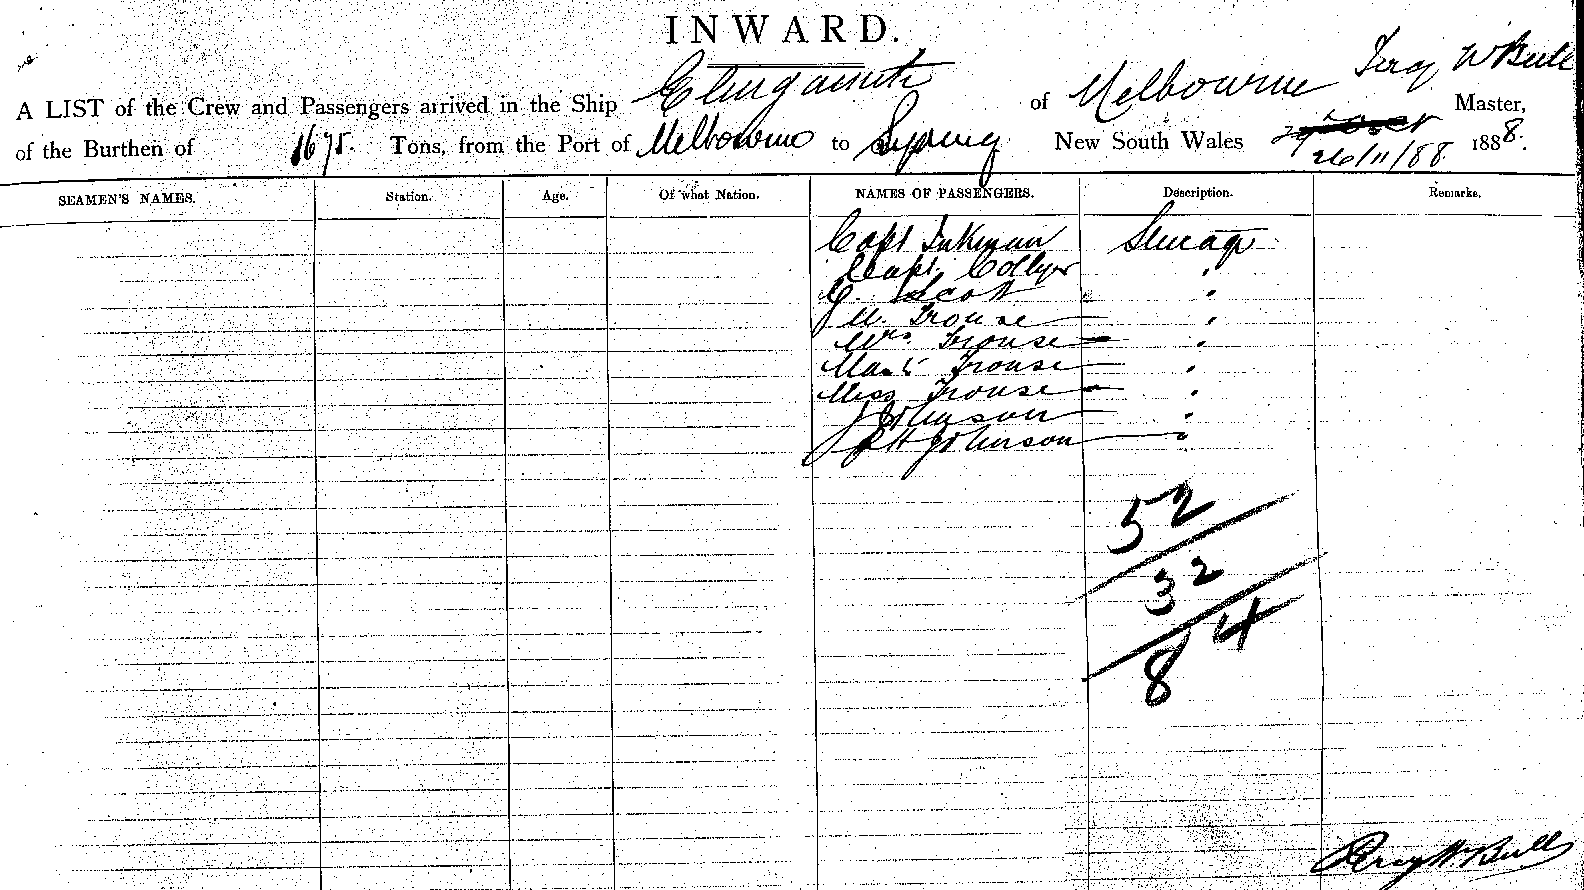 INWARD.
A LIST of the Crew and Passengers arrived in the Ship Elingamite of Melbourne W Bull Master,
of the Burthen of 1675. Tons, from the Port of Melbourne to Sydney New South Wales 26/11/88 1888.
SEAMEN'S NAMES. Station. Age. Of what Nation. NAMES OF PASSENGERS. Description. Remarks.
Capt Inkman Steerage
Capt. Collyer "
C. Scott "
M. Trouse "
Mrs Trouse "
Mast Trouse "
Miss Trouse "
Johnson "
Johnson "
52
32
84
W Bull